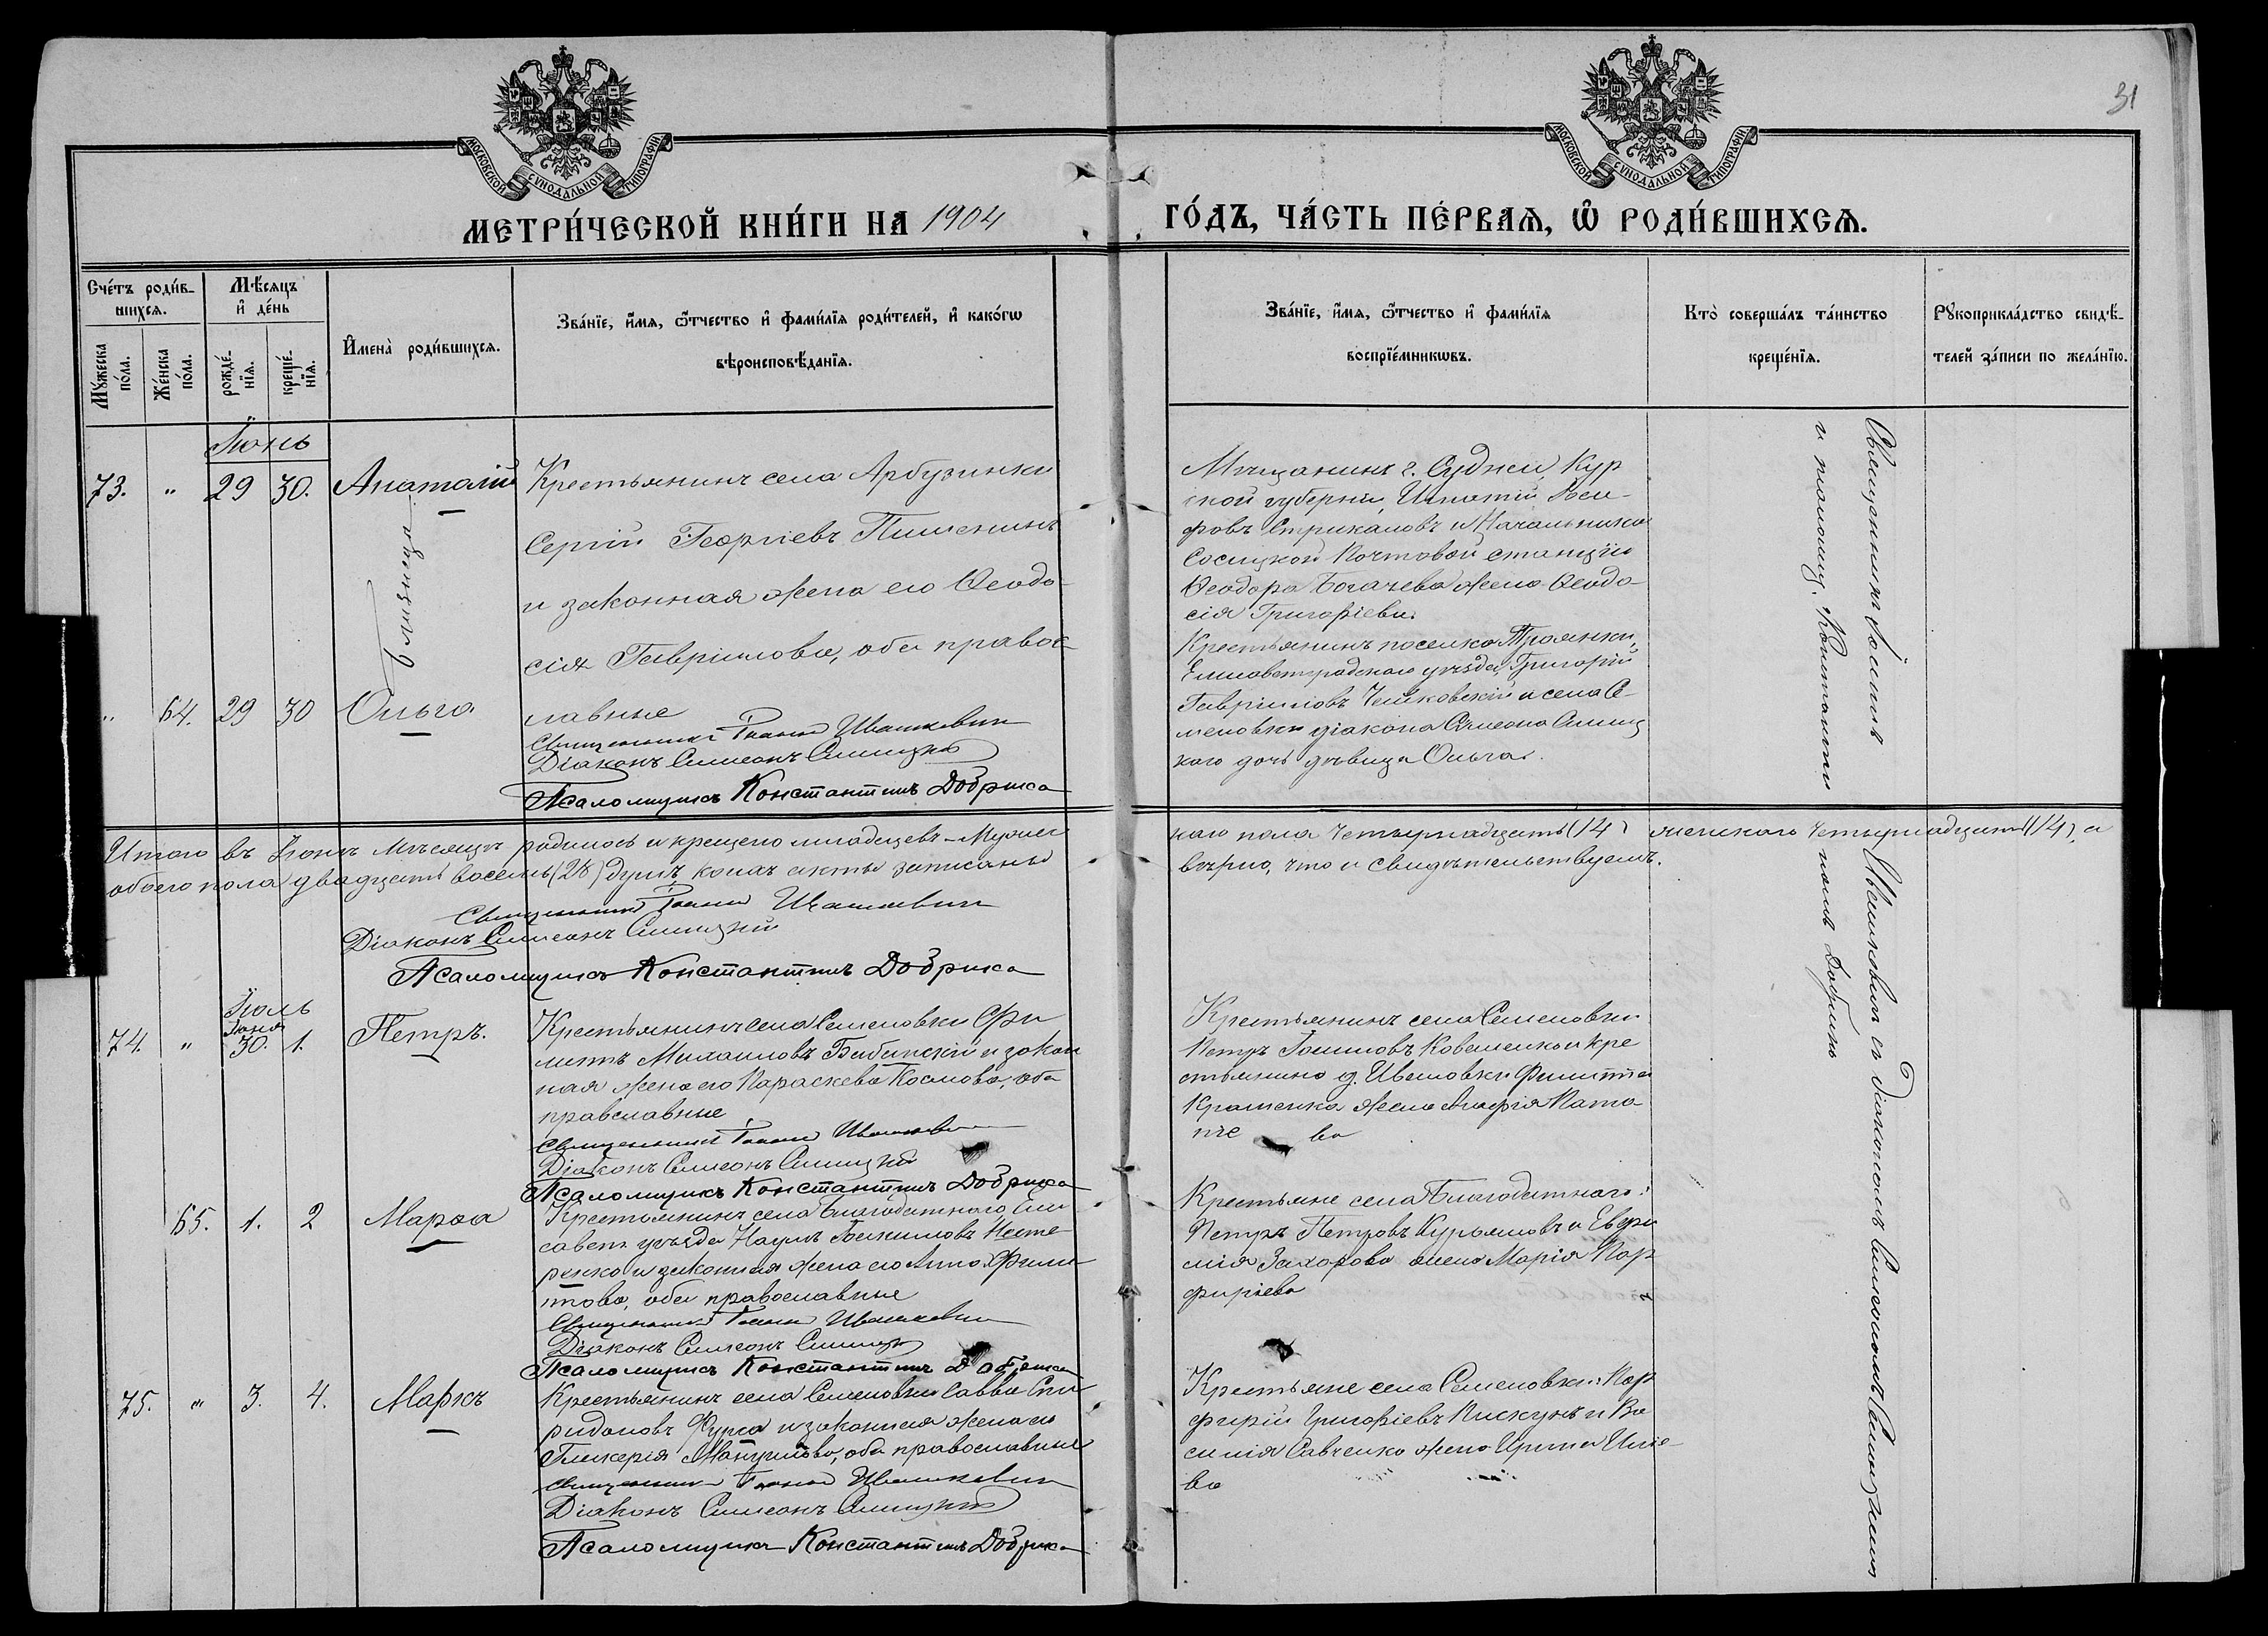 31
МОСКОВСКОЙ СѴНОДАЛЬНОЙ ТИПОГРАФІИ
МОСКОВСКОЙ СѴНОДАЛЬНОЙ ТИПОГРАФІИ
МЕТРИ́ЧЕСКОЙ КНИ́ГИ НА 1904
ГО́ДЪ, ЧА́СТЬ ПЕ́РВАѦ, Ѽ РОДИ́ВШИХСѦ.
Сче́тъ роди́в-
шихсѧ.
Мꙋ́жеска по́ла.
Же́нска по́ла.
Мѣ́сѧцъ
и҆ де́нь
рожде́-
нїѧ.
креще́-
нїѧ.
И҆мена̀ роди́вшихсѧ.
Зва́нїе, и҆́мѧ, ѻ҆́тчество и҆ фами́лїѧ роди́телей, и҆ како́гѡ
вѣроисповѣ́данїѧ.
Зва́нїе, и҆́мѧ, ѻ҆́тчество и҆ фами́лїѧ
воспрїе́мникѡвъ.
Кто̀ соверша́лъ та́инство
креще́нїѧ.
Рꙋкоприкла́дство свидѣ́-
телей за́писи по жела́нїю.
Іюнь
73. " 29 30. Анатолій
близнецы
" 64. 29 30 Ольга
Крестьянинъ села Арбузинки
Сергій Георгіевъ Пишенинъ
и законная жена его Ѳеодо-
сія Гавріилова, оба правос-
лавные
Священникъ Іоаннъ Ивашкевич
Діаконъ Симеонъ Синицкій
Псаломщикъ Константинъ Добриха
Мѣщанинъ г. Суджи, Кур
ской губерніи, Игнатій Іоси-
фовъ Стрикаловъ и Начальника
Сосицкой Почтовой станціи
Ѳеодора Богачева жена Ѳеодо-
сія Григоріева.
Крестьянинъ поселка Троянки,
Елисаветградскаго уѣзда, Григорій
Гавріиловъ Чейковскій и села Се-
меновки діакона Симеона Синиц
каго дочь дѣвица Ольга.
Священникъ Іоаннъ
Ивашкевичъ съ діакономъ Симеономъ Синицкимъ
и псаломщ. Константи
номъ Добрихою
Итого въ Іюнѣ мѣсяцѣ родилось и крещено младенцевъ - Мужес
каго пола четырнадцать (14) женскаго четырнадцать (14), а
обоего пола двадцать восемь (28) душъ, коихъ акты записаны
вѣрно, что и свидѣтельствуемъ.
Священникъ Іоаннъ Ивашкевич
Діаконъ Симеонъ Синицкій
Псаломщикъ Константинъ Добриха
Іюль
74. " Іюня 30. 1. Петръ.
Крестьянинъ села Семеновки Фи
липпъ Михаиловъ Бабинскій и закон
ная жена его Параскева Космова, оба
православные
Священникъ Іоаннъ Ивашкевич
Діаконъ Симеонъ Синицкій
Псаломщикъ Константинъ Добриха
Крестьянинъ села Семеновки
Петръ Іоанновъ Коваленко и кре
стьянина д. Ивановки Филиппа
жена Агафія Пота
пьева
65. 1. 2 Марѳа
Крестьянинъ села Благодатнаго, Ели
савет. уѣзда Наумъ Іоакимовъ Несте
ренко и законная жена его Анна Филип
пова, оба православные
Священникъ Іоаннъ Ивашкевич
Діаконъ Симеонъ Синицкій
Псаломщикъ Константинъ Добриха
Крестьяне села Благодатнаго:
Петръ Петровъ Курьяновъ и Евфи
мія Захарова жена Марія Пор
фиріева
75. " 3. 4. Маркъ
Крестьянинъ села Семеновки Савва Спи
ридоновъ Фурса и законная жена его
Гликерія Мануилова, оба православные
Священникъ Іоаннъ Ивашкевич
Діаконъ Симеонъ Синицкій
Псаломщикъ Константинъ Добриха
Крестьяне села Семеновки: Пор
фирій Григоріевъ Пискунъ и Ва
силія Савченко жена Ирина Иліе-
ва